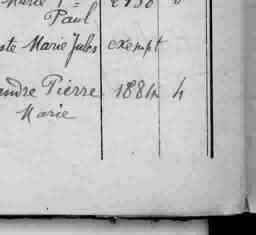 Paul
ste Marie Jules exempt
andre Pierre 1884 4
Marie